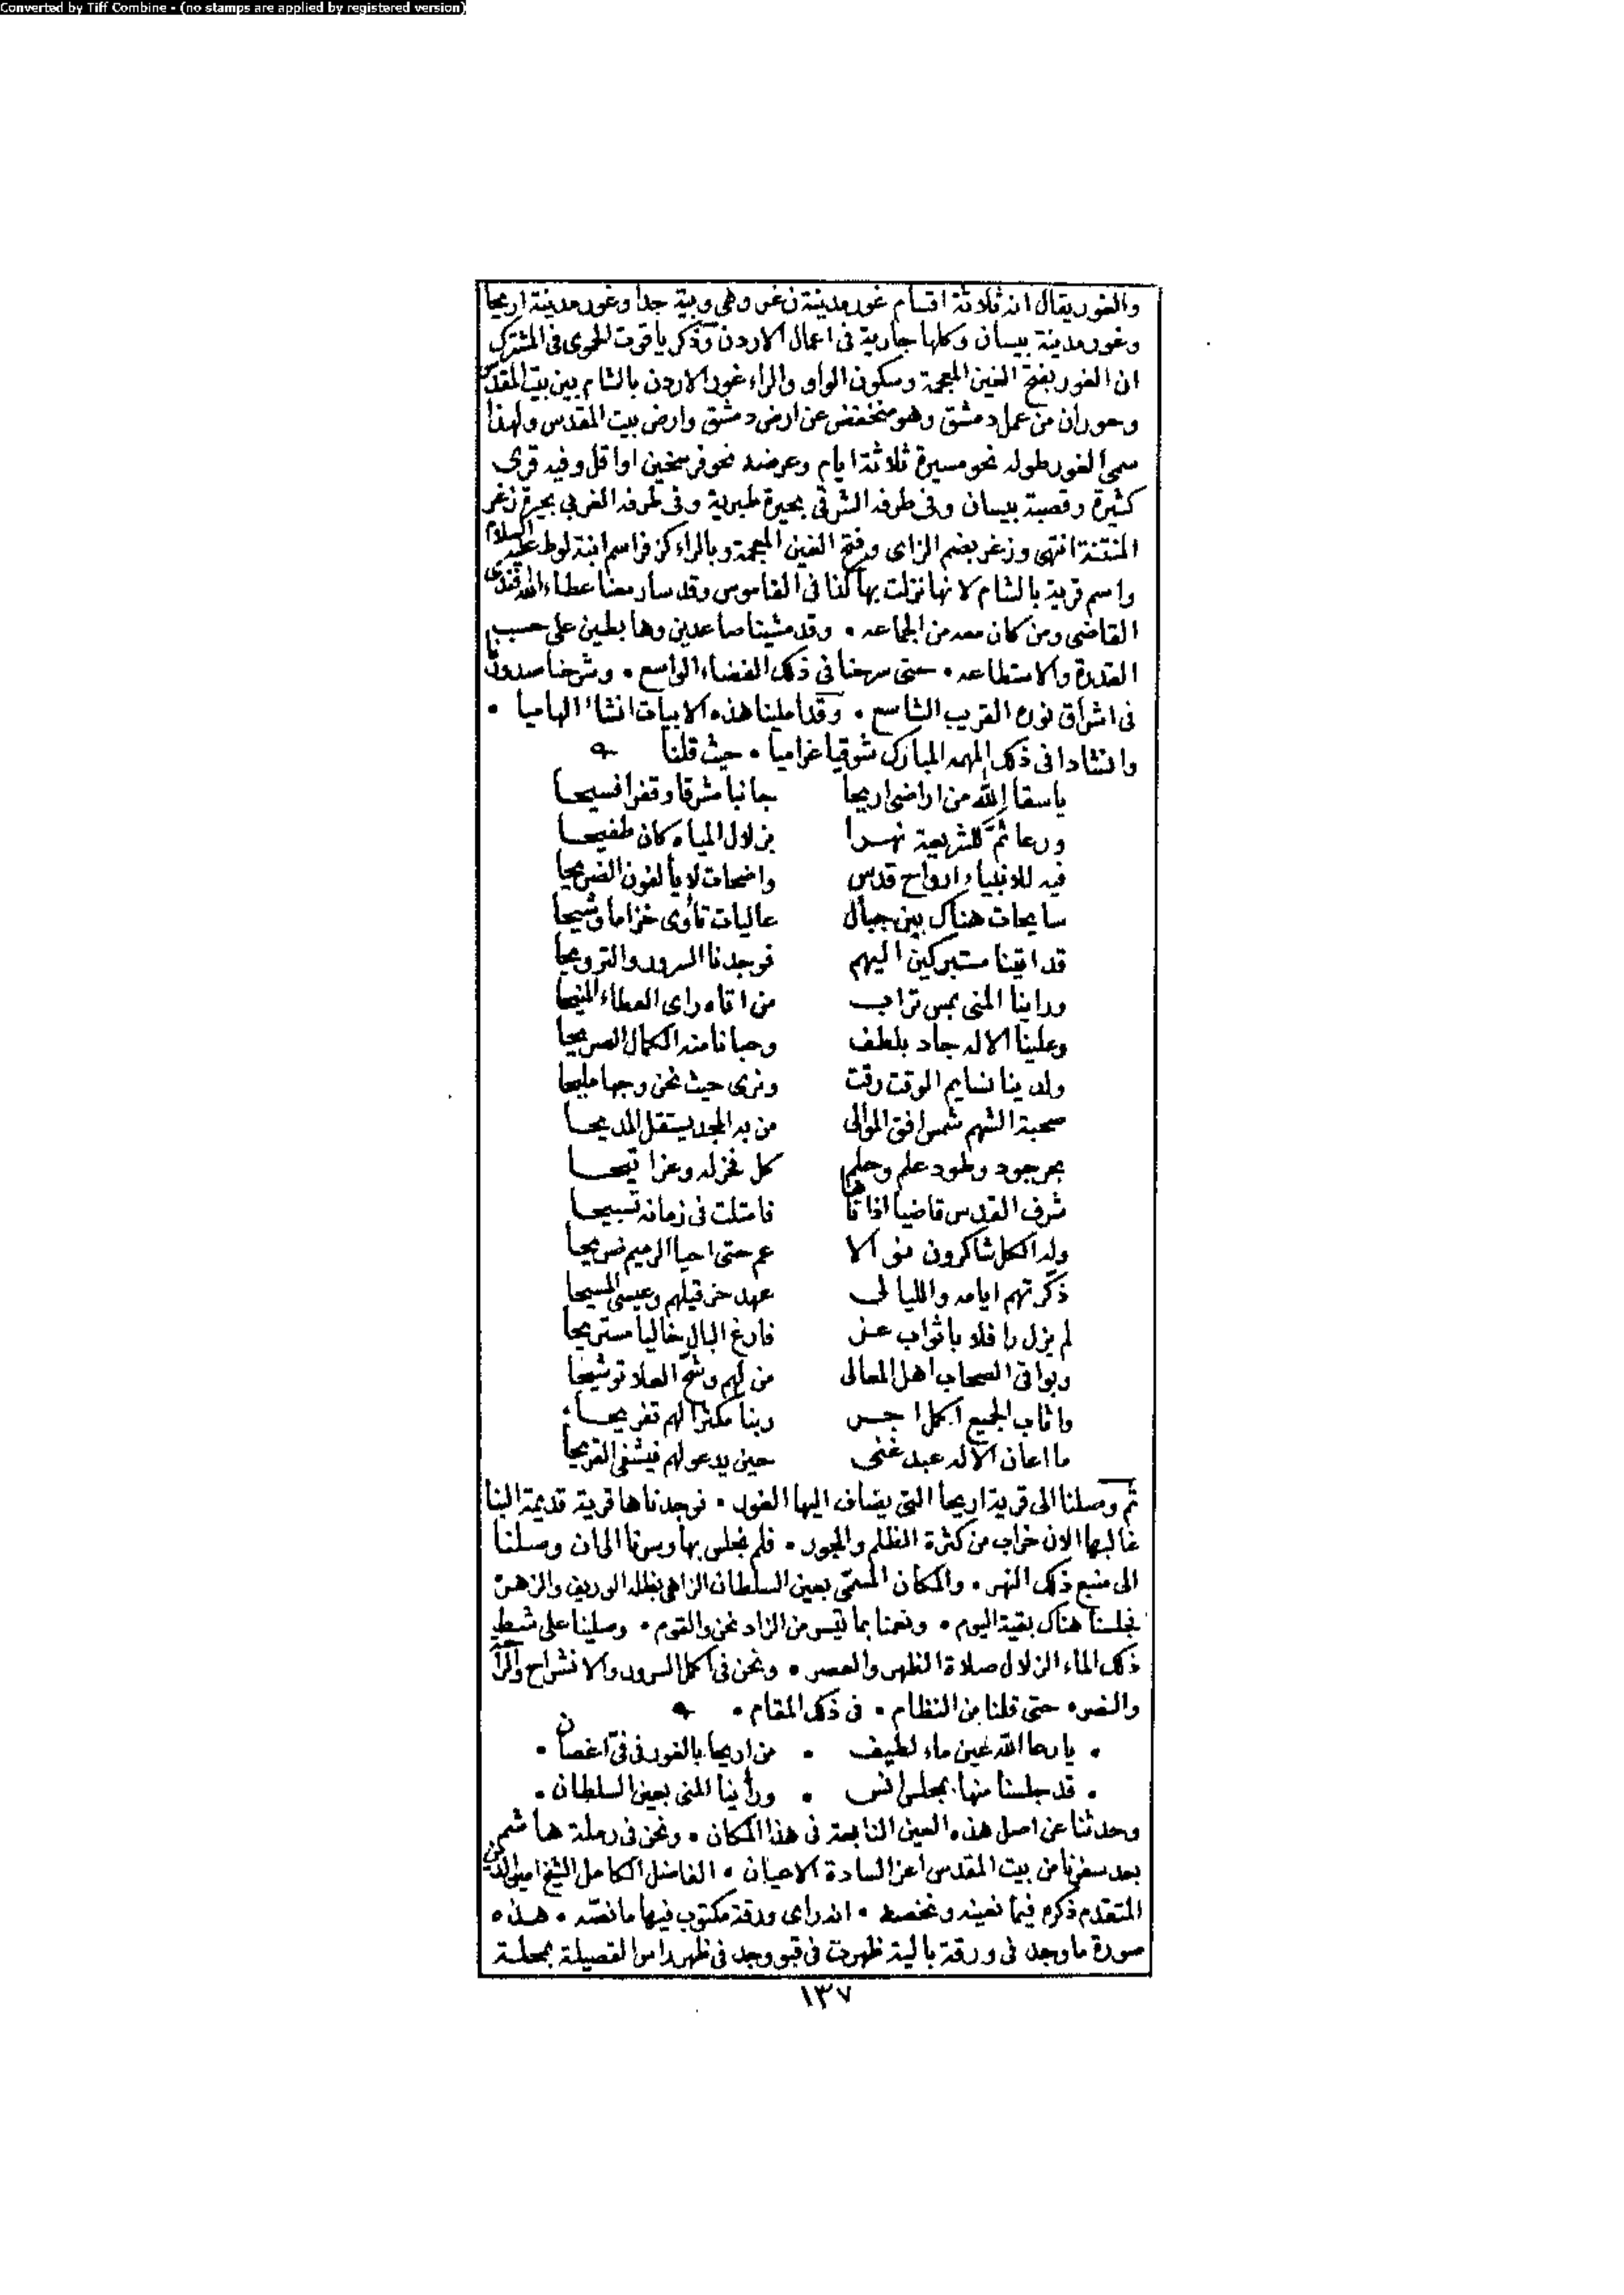 Converted by Tiff Combine - (no stamps are applied by registered version)
والغور يقال انه ثلاثة اقسام غور مدينة زغر وهي وبية جدا وغور مدينة اريحا
وغور مدينة بيسان وكلها جارية فى اعمال الاردن وذكر ياقوت الحموى فى المشترك
ان الغور بفتح الغين المعجمة وسكون الواو والراء غور الاردن بالشام بين بيت المقدس
وحوران من عمل دمشق وهو منخفض عن ارض دمشق وارض بيت المقدس ولهذا
سمى الغور طوله نحو مسيرة ثلاثة ايام وعرضه نحو فرسخين او اقل وفيه قرى
كثيرة وقصبة بيسان وفى طرفه الشرقى بحيرة طبرية وفى طرفه الغربي بحيرة زغر
المنتنة انتهى وزغر بضم الزاى وفتح الغين المعجمة وبالراء كزفر اسم ابنة لوط عليه السلام
واسم قرية بالشام لانها نزلت بها كذا فى القاموس وقد سار معنا عطاء الله افندى
القاضى ومن كان معه من الجماعه • وقد مشينا صاعدين وهابطين على حسب
القدرة والاستطاعه • حتى سرحنا فى ذلك الفضاء الواسع • وشرحنا صدورنا
فى اشراق نوره القريب الشاسع • وقد املينا هذه الابيات انشاء الهاميا •
وانشادا فى ذلك المهمه المبارك شوقيا غراميا • حيث قلنا
ياسقا الله من اراضى اريحا جانبا مشرقا وقفرا فسيحا
ورعا ثَمَّ للشريعة نهرا بزلال المياه كان طفيحا
فيه للانبياء ارواح قدس واضحات لا يألفون الضريحا
سايحات هناك بين جبال عاليات تأوى خزاما وشيحا
قد اتينا متبركين اليهم فوجدنا السرور والترويحا
وراينا المنى بمس تراب من اتاه راى العطاء المنيحا
وعلينا الاله جاد بلطف وحبانا منه الكمال الصريحا
ولدينا نسايم الوقت رقت ونرى حيث نحن وجها مليحا
صحبة الشهم شمس افق الموالى من به المجد يستقل المديحا
بحر جود وطود علم وحلم كل فخر له وعز اتيحا
شرف القدس قاضيا اذ اتاها فامتلت فى زمانه تسبيحا
وله الكل شاكرون فنى الا عم حتى احيا الرميم ضريحا
ذكرتهم ايامه والليالى عهد حزقيلهم وعيسى المسيحا
لم يزل رافلا باثواب عز فارغ البال خاليا مستريحا
وبواقى الصحاب اهل المعالى من لهم وشح العلا توشيحا
واثاب الجميع اكمل اجر ربنا مكثرا لهم تفريحا
ما اعان الاله عبد غنى حين يدعو لهم فيشفى القريحا
ثم وصلنا الى قرية اريحا التى يضاف اليها الغور • فوجدناها قرية قديمة البنا
غالبها الان خراب من كثرة الظلم والجور • فلم نجلس بها وسرنا الى ان وصلنا
الى منبع ذلك النهر • والمكان المسمّى بعين السلطان الزاهى بظله الوريف والزهر
فجلسنا هناك بقية اليوم • ونعمنا بما تيسر من الزاد نحن والقوم • وصلينا على شط
ذلك الماء الزلال صلاة الظهر والعصر • ونحن فى اكمل السرور والانشراح والراحة
والنصر • حتى قلنا من النظام • فى ذلك المقام •
• يارعا الله عين ماء لطيف • من اريحا بالغور فى اغصان •
• قد جلسنا منها بمجلس انس • ورأينا المنى بعين السلطان •
وحدثنا عن اصل هذه العين النابعة فى هذا المكان • ونحن فى رملة هاشم
بعد سفرنا من بيت المقدس اعز السادة الاعيان • الفاضل الكامل الشيخ امين الدين
المتقدم ذكره فيما نعينه ونخصه • انه راى ورقة مكتوب فيها ما نصّه • هذه
صورة ما وجد فى ورقة بالية ظهرت فى قبو وجد فى ظهر راس الفصيلة بمحلة
١٣٧